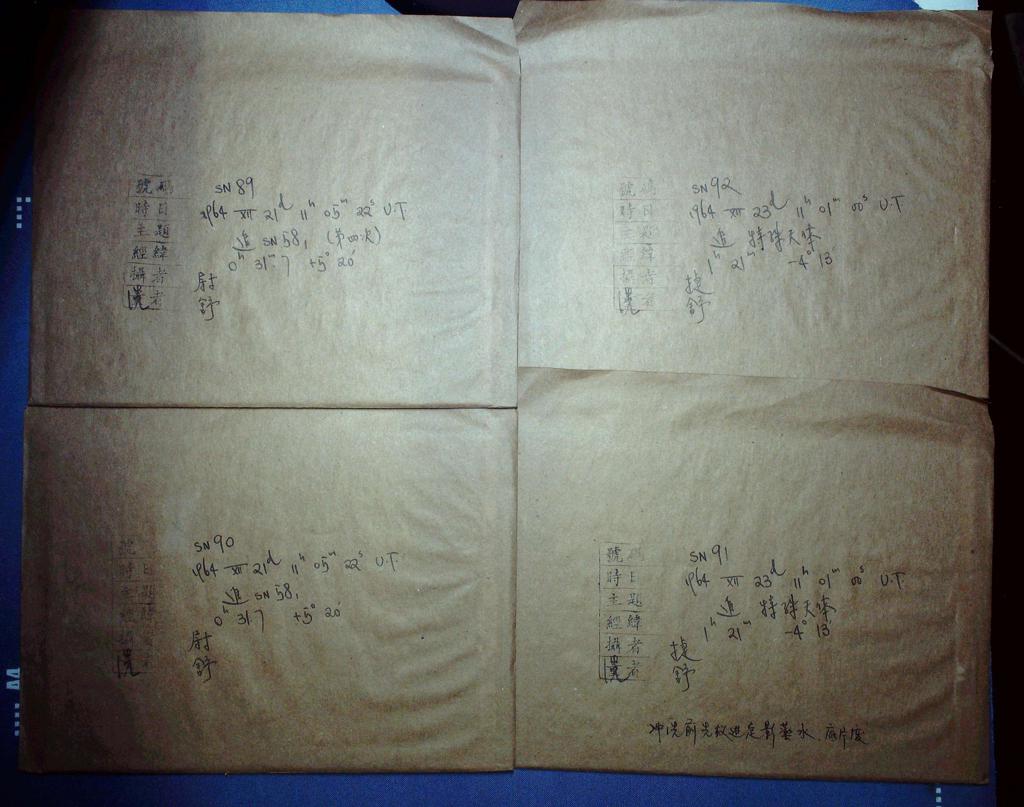 號碼 SN 89
時日 1964 XII 21ᵈ 11ʰ 05ᵐ 22ˢ U.T
主題 追 SN 58, (第四次)
經緯 0ʰ 31ᵐ.7 +5° 20'
攝者 尉
洗者 舒
號碼 SN 92
時日 1964 XII 23ᵈ 11ʰ 01ᵐ 00ˢ U.T
主題 追 特殊天体
經緯 1ʰ 21ᵐ -4° 13'
攝者 捷
洗者 舒
號 SN 90
時日 1964 XII 21ᵈ 11ʰ 05ᵐ 22ˢ U.T
主題 追 SN 58,
經緯 0ʰ 31.7 +5° 20'
攝 尉
洗者 舒
號碼 SN 91
時日 1964 XII 23ᵈ 11ʰ 01ᵐ 00ˢ U.T.
主題 追 特殊天体
經緯 1ʰ 21ᵐ -4° 13'
攝者 捷
洗者 舒
冲洗前先放进定影葯水, 底片廢